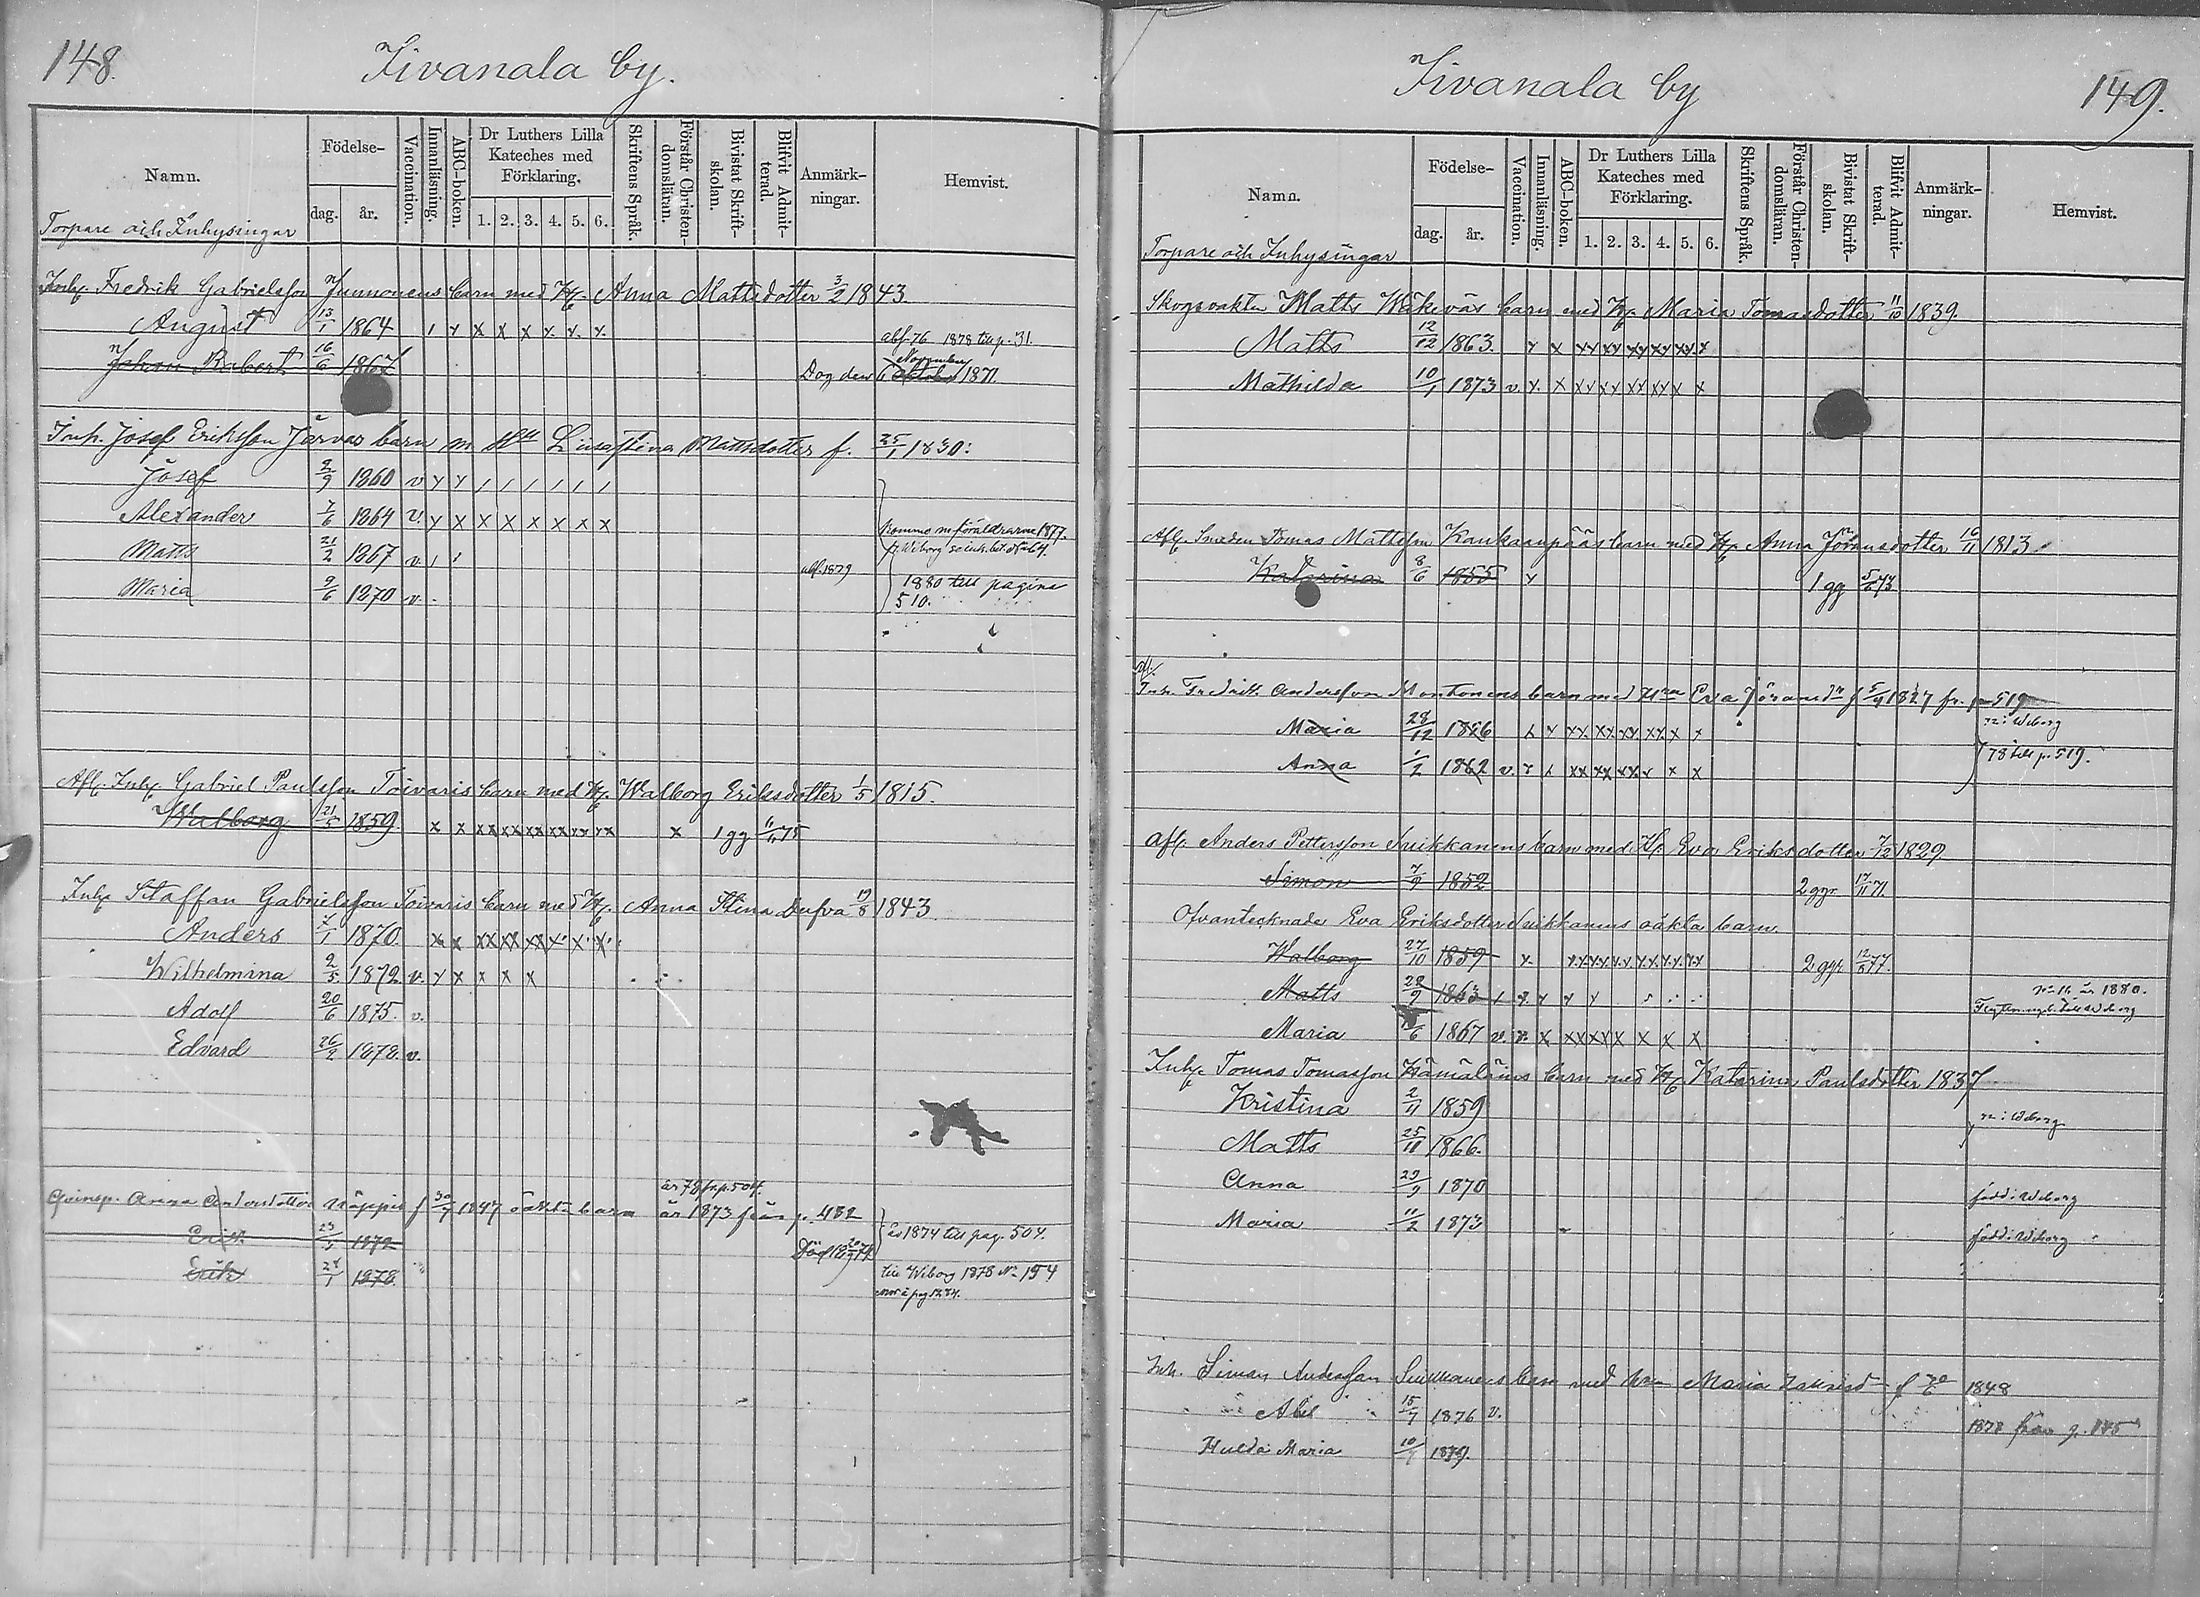 148.
Jivanala by.
Namn.
Födelse-
dag.
år.
Vaccination.
Innanläsning.
ABC-boken.
Dr Luthers Lilla Kateches med Förklaring.
1. 2. 3. 4. 5. 6.
Skriftens Språk.
Förstår Christendomsläran.
Bivistat Skriftskolan.
Blifvit Admitterad.
Anmärkningar.
Hemvist.
Torpare och Inhysingar
Inh. Fredrik Gabrielsson Junnonens barn med H. Anna Mattsdotter 3/2 1843
August 13/1 1864 abf. 76 1878 till p. 31.
Johan Robert 16/6 1867 Dog den 6 November 1871.
Inh. Josef Eriksson Järvas barn m. Lisa Stina Mattsdotter f. 25/1 1830:
Josef 2/9 1860 v
Alexander 7/6 1864 v.
Matts 21/2 1867 v.
Maria 9/6 1870 v.
abf. 1879
1880 till pagina 510.
Afl. Inh. Gabriel Paulsson Toivaris barn med H. Walborg Eriksdotter 1/5 1815.
Walborg 21/5 1859 1 gg 75
Inh. Staffan Gabrielsson Toivaris barn med H. Anna Stina Dufva 19/8 1843
Anders 1870
Wilhelmina 2/5 1872 v.
Adolf 20/6 1875. v.
Edvard 26/2 1878. v.
Qvinsp. Anna Andersdotter Näppis f 30/7 1847 oäkta barn år 1873 från p. 482
år 78 fr. p. 504.
Erik 1872 Död år 1874 till pag. 504.
Erik 28/1 1878. till Wiborg 1878 No 154
149.
Jivanala by
Namn.
Födelse-
dag.
år.
Vaccination.
Innanläsning.
ABC-boken.
Dr Luthers Lilla Kateches med Förklaring.
1. 2. 3. 4. 5. 6.
Skriftens Språk.
Förstår Christendomsläran.
Bivistat Skriftskolan.
Blifvit Admitterad.
Anmärkningar.
Hemvist.
Torpare och Inhysingar
Skogsvakten Matts Wäkeväs barn med H. Maria Tomasdotter 11/10 1839.
Matts 12/12 1863.
Mathilda 10/1 1873 v.
Afl. Smeden Tomas Mattsson Kankaanpääs barn med H. Anna Göransdotter 16/11 1813.
Katarina 8/6 1855 1 gg 73
Inh. Fredrik Andersson Montonens barn med Eva f 5/4 1827 fr. p 519
Maria 28/12 1856 n: i Wiborg
Anna 1/2 1862 v. 78 till p. 519.
Afl. Anders Pettersson Suikkanens barn med H. Eva Eriksdotter 7/12 1829
Simon 7/9 1852 2 ggr 17/11 71
Ofvantecknade Eva Eriksdotter Suikkanens oäkta barn.
Walborg 27/10 1859 2 ggr 77.
Matts 28/9 1863 1880.
Maria 1867 v.
Inh. Tomas Tomasson Hämäläins barn med H. Katarina Paulsdotter 1837
Kristina 2/11 1859 n: i Wiborg
Matts 25/10 1866.
Anna 29/9 1870 född i Wiborg
Maria 11/2 1873 född i Wiborg
Inh. Simon Andersson Suikkanens barn med hu Maria f 1848
Abel 15/7 1876 v. 1878 från p. 145
Hulda Maria 1879.